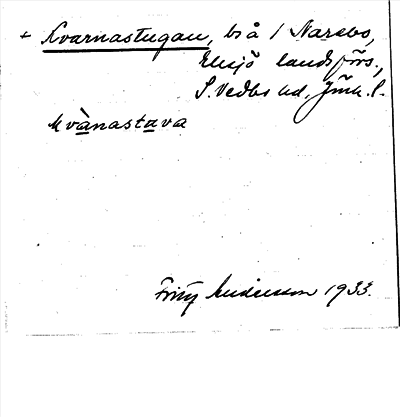 + Kvarnastugan, bs å 1 Narebo,
Eksjö landsförs.,
S. Vedbo hd, Jönk. l.
kvànastava
Fritz Andersson 1933.